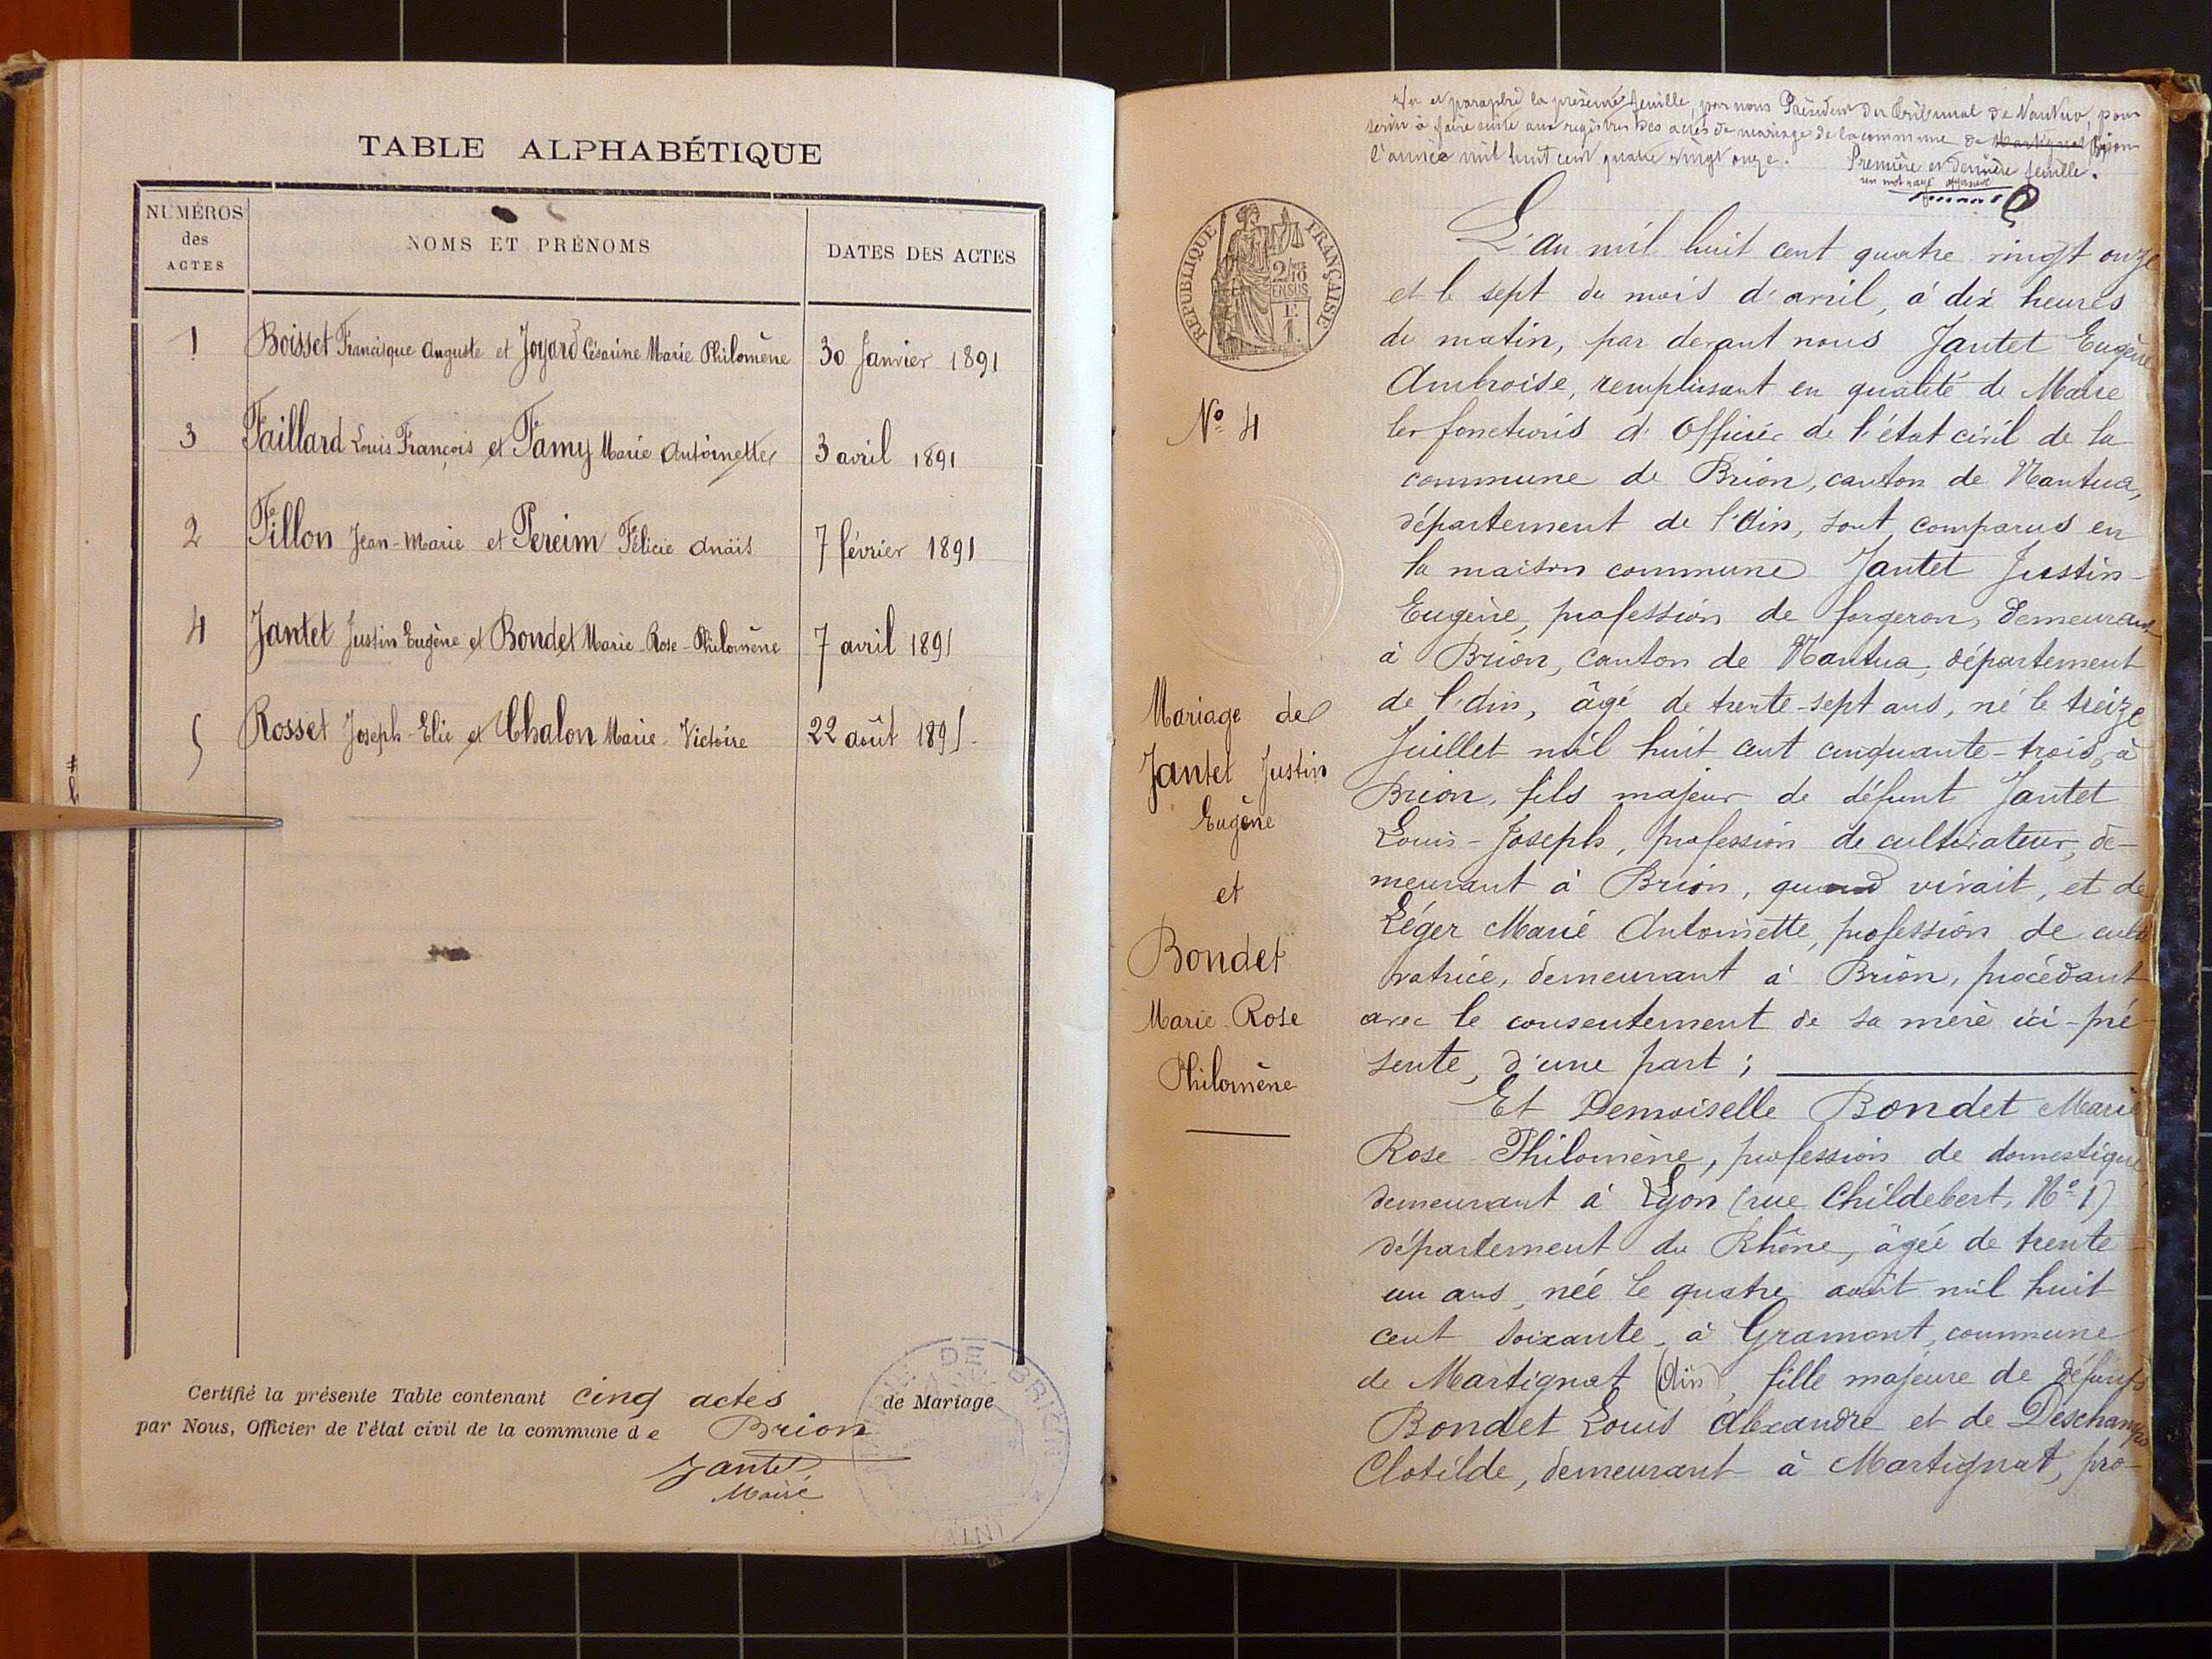 TABLE ALPHABÉTIQUE
NUMÉROS
des
ACTES
NOMS ET PRÉNOMS
DATES DES ACTES
1 Boisset Francisque Auguste et Joyard Césarine Marie Philomène 30 Janvier 1891
3 Faillard Louis François et Famy Marie Antoinette 3 avril 1891
2 Fillon Jean-Marie et Pereim Félicie Anaïs 7 février 1891
4 Jantet Justin Eugène et Bondet Marie-Rose-Philomène 7 avril 1891
5 Rosset Joseph-Elie et Chalon Marie-Victoire 22 août 1891
Certifié la présente Table contenant cinq actes de Mariage
par Nous, Officier de l'état civil de la commune de Brion
Jantet
Maire
MAIRIE DE BRION
(AIN)
Vu et paraphé la présente feuille, par nous Président du Tribunal de Nantua, pour
servir à faire suite aux registres des actes de mariage de la commune de Martignat Brion
l'année mil huit cent quatre vingt onze. Première et dernière feuille.
un mot rayé approuvé
RÉPUBLIQUE FRANÇAISE
2/10
EN SUS
1F
N° 4
Mariage de
Jantet Justin
Eugène
et
Bondet
Marie-Rose
Philomène
L'an mil huit cent quatre vingt onze
et le sept du mois d'avril, à dix heures
du matin, par devant nous Jantet Eugène
Ambroise, remplissant en qualité de Maire
les fonctions d'Officier de l'état civil de la
commune de Brion, canton de Nantua,
département de l'Ain, sont comparus en
la maison commune Jantet Justin-
Eugène, profession de forgeron, demeurant
à Brion, canton de Nantua, département
de l'Ain, âgé de trente-sept ans, né le treize
Juillet mil huit cent cinquante-trois, à
Brion, fils majeur de défunt Jantet
Louis-Joseph, profession de cultivateur, de-
meurant à Brion, quand vivait, et de
Léger Marie Antoinette, profession de culti
vatrice, demeurant à Brion, procédant
avec le consentement de sa mère ici-pré
sente, d'une part;
Et Demoiselle Bondet Marie
Rose-Philomène, profession de domestique
demeurant à Lyon (rue Childebert, N° 1)
département du Rhône, âgée de trente-
un ans, née le quatre août mil huit
cent soixante, à Gramont, commune
de Martignat (Ain), fille majeure de défunts
Bondet Louis Alexandre et de Deschamps
Clotilde, demeurant à Martignat, pro-